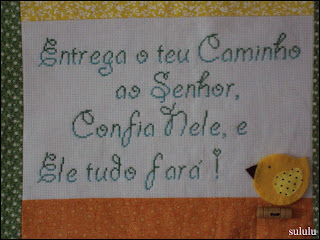 Entrega o teu Caminho
ao Senhor,
Confia Nele, e
Ele tudo fará !
sululu